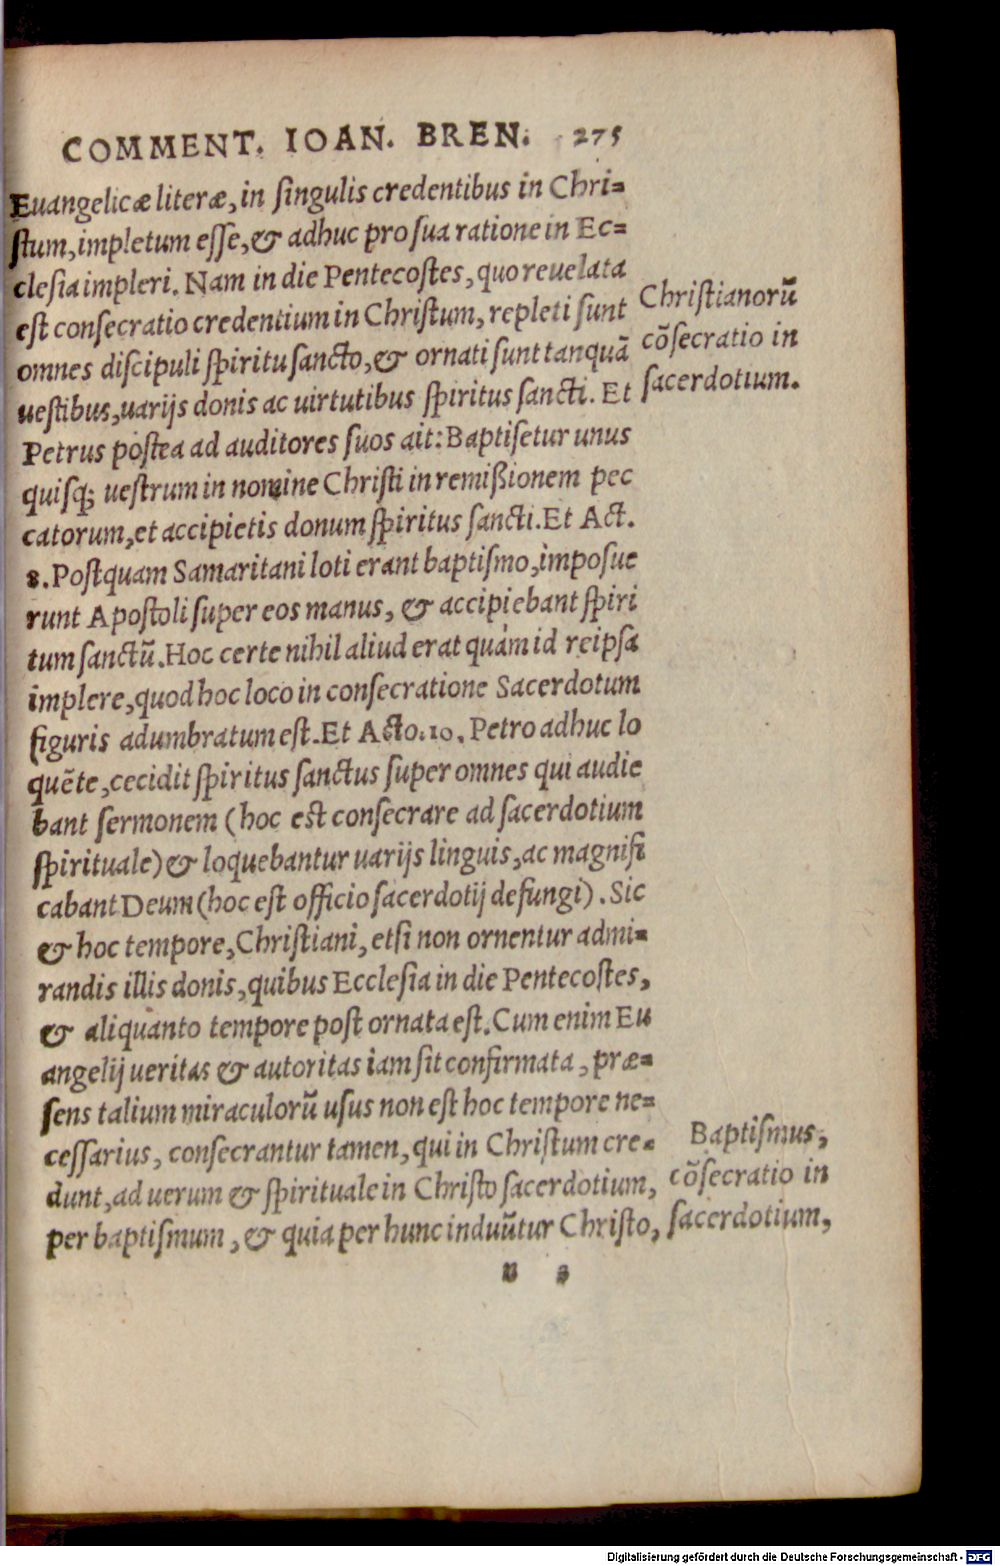 COMMENT. IOAN. BREN. 275
Euangelicæ literæ, in singulis credentibus in Chri-
stum, impletum esse, & adhuc pro sua ratione in Ec-
clesia impleri. Nam in die Pentecostes, quo reuelata
est consecratio credentium in Christum, repleti sunt
omnes discipuli spiritu sancto, & ornati sunt tanquā
uestibus, uarijs donis ac uirtutibus spiritus sancti. Et
Christianorū
cōsecratio in
sacerdotium.
Petrus postea ad auditores suos ait: Baptisetur unus
quisq; uestrum in nomine Christi in remißionem pec
catorum, et accipietis donum spiritus sancti. Et Act.
8. Postquam Samaritani loti erant baptismo, imposue
runt Apostoli super eos manus, & accipiebant spiri
tum sanctū. Hoc certe nihil aliud erat quàm id reipsa
implere, quod hoc loco in consecratione Sacerdotum
figuris adumbratum est. Et Acto. 10. Petro adhuc lo
quēte, cecidit spiritus sanctus super omnes qui audie
bant sermonem (hoc est consecrare ad sacerdotium
spirituale) & loquebantur uarijs linguis, ac magnifi
cabant Deum (hoc est officio sacerdotij defungi). Sic
& hoc tempore, Christiani, etsi non ornentur admi-
randis illis donis, quibus Ecclesia in die Pentecostes,
& aliquanto tempore post ornata est. Cum enim Eu
angelij ueritas & autoritas iam sit confirmata, præ-
sens talium miraculorū usus non est hoc tempore ne-
cessarius, consecrantur tamen, qui in Christum cre-
dunt, ad uerum & spirituale in Christo sacerdotium,
per baptismum, & quia per hunc induūtur Christo,
Baptismus,
cōsecratio in
sacerdotium,
u 3
Digitalisierung gefördert durch die Deutsche Forschungsgemeinschaft - DFG